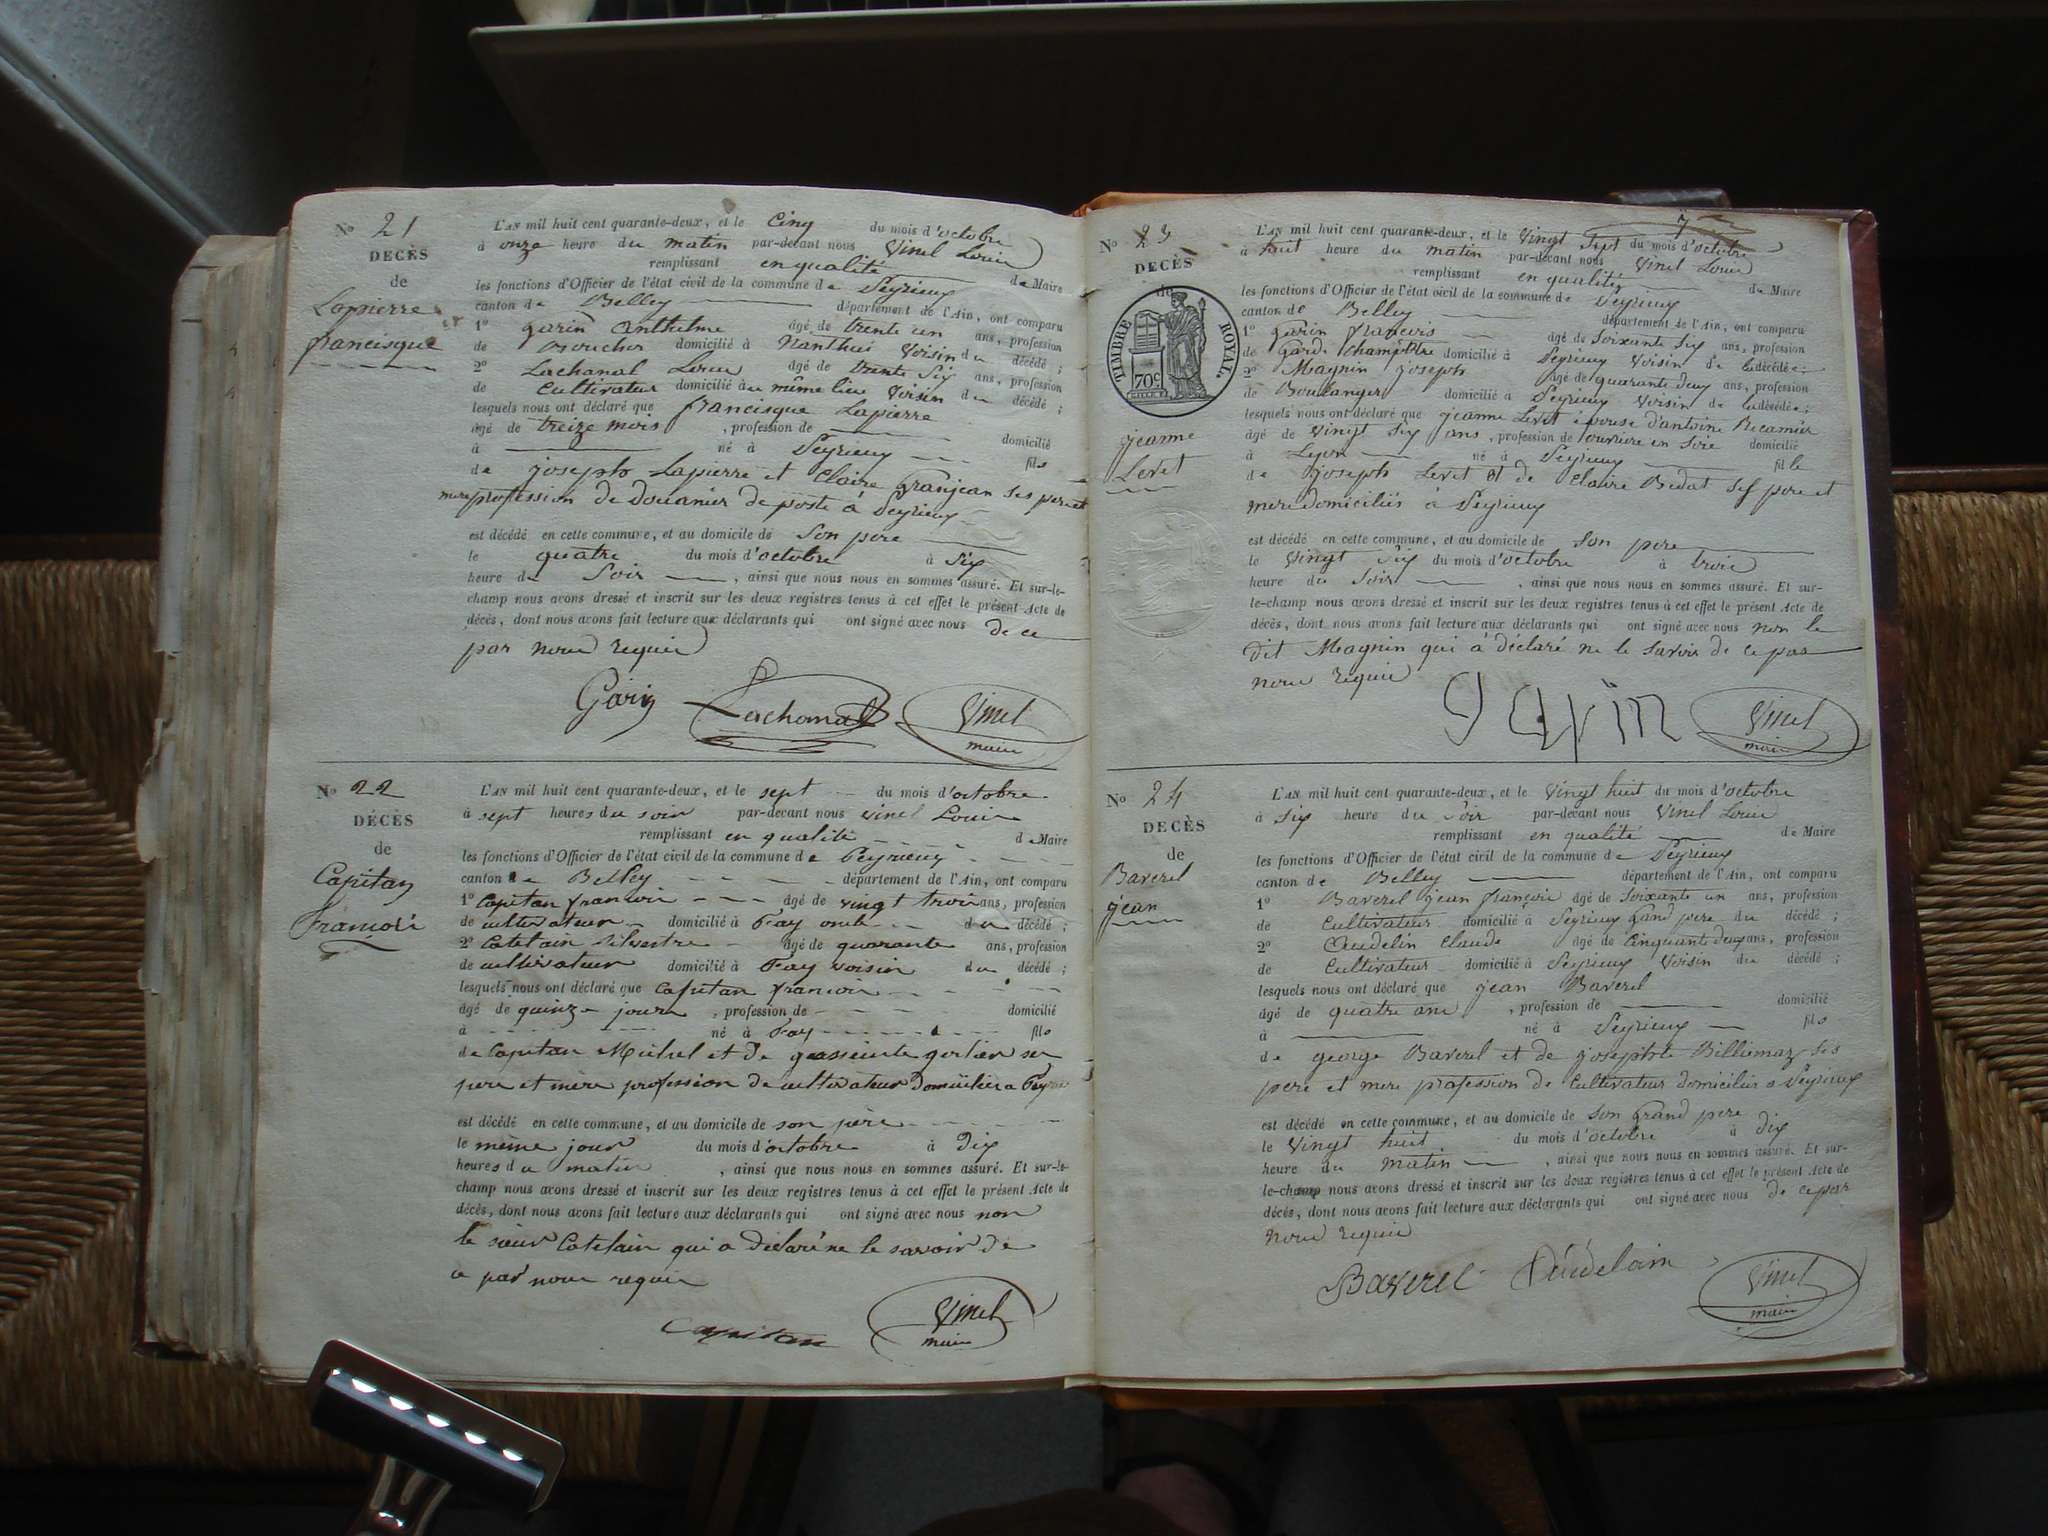 No 21
DECÈS
de
Lapierre
francisque
L'AN mil huit cent quarante-deux, et le Cinq du mois d'octobre
à onze heure du matin par-devant nous Vinel Louis
remplissant en qualité de Maire
les fonctions d'Officier de l'état civil de la commune de Peyrieux
canton de Belley département de l'Ain, ont comparu
1º garin anthelme âgé de trente un ans, profession
de domicilié à Nanthui Voisin du décédé ;
2º Lachanal Louis âgé de trente Six ans, profession
de Cultivateur domicilié au même lieu Voisin du décédé ;
lesquels nous ont déclaré que francisque Lapierre
âgé de treize mois , profession de domicilié
à né à Peyrieux fils
de joseph Lapierre et Claire granjean ses pere et
mere profession de Douanier de poste à Peyrieux
est décédé en cette commune, et au domicile de Son pere
le quatre du mois d'octobre à Six
heure du Soir , ainsi que nous nous en sommes assuré. Et sur-le-
champ nous avons dressé et inscrit sur les deux registres tenus à cet effet le présent Acte de
décès, dont nous avons fait lecture aux déclarants qui ont signé avec nous de ce
par nous requis
Garin Lachanal Vinel
maire
No 22
DECÈS
de
Capitan
françois
L'AN mil huit cent quarante-deux, et le sept du mois d'octobre
à sept heures du soir par-devant nous vinel Louis
remplissant en qualité de Maire
les fonctions d'Officier de l'état civil de la commune de Peyrieux
canton de Belley département de l'Ain, ont comparu
1º Capitan francois âgé de vingt trois ans, profession
de cultivateur domicilié à Fay oncle du décédé ;
2º Catelain Silvestre âgé de quarante ans, profession
de cultivateur domicilié à Fay voisin du décédé ;
lesquels nous ont déclaré que Capitan francois
âgé de quinze jours , profession de domicilié
à né à Fay fils
de Capitan Michel et de ses
pere et mère profession de cultivateur domiciliés a
est décédé en cette commune, et au domicile de son père
le même jour du mois d'octobre à Dix
heures du matin , ainsi que nous nous en sommes assuré. Et sur-le-
champ nous avons dressé et inscrit sur les deux registres tenus à cet effet le présent Acte de
décès, dont nous avons fait lecture aux déclarants qui ont signé avec nous non
le sieur Catelain qui a déclaré ne le savoir de
ce par nous requis
Capitan Vinel
maire
7
No 23
DECÈS
de
TIMBRE ROYAL.
70c
jeanne
Levet
L'AN mil huit cent quarante-deux, et le Vingt Sept du mois d'octobre
à huit heure du matin par-devant nous Vinel Louis
remplissant en qualité de Maire
les fonctions d'Officier de l'état civil de la commune de Peyrieux
canton de Belley département de l'Ain, ont comparu
1º Garin francois âgé de Soixante Six ans, profession
de Garde Champêtre domicilié à Peyrieux Voisin de la décédée ;
2º Magnin joseph âgé de quarante deux ans, profession
de Boulanger domicilié à Peyrieux Voisin de la décédée ;
lesquels nous ont déclaré que jeanne Levet épouse d'antoine Recamier
âgé de Vingt Six ans , profession de ouvriere en Soie domicilié
à Lyon né à Peyrieux fille
de joseph Levet et de Claire Bedat Ses pere et
mere domiciliés à Peyrieux
est décédé en cette commune, et au domicile de Son pere
le Vingt Six du mois d'octobre à trois
heure du Soir , ainsi que nous nous en sommes assuré. Et sur-
le-champ nous avons dressé et inscrit sur les deux registres tenus à cet effet le présent Acte de
décès, dont nous avons fait lecture aux déclarants qui ont signé avec nous non le
dit Magnin qui à déclaré ne le Savoir de ce par
nous requis
garin Vinel
maire
No 24
DECÈS
de
Baverel
jean
L'AN mil huit cent quarante-deux, et le Vingt huit du mois d'octobre
à Six heure du Soir par-devant nous Vinel Louis
remplissant en qualité de Maire
les fonctions d'Officier de l'état civil de la commune de Peyrieux
canton de Belley département de l'Ain, ont comparu
1º Baverel jean françois âgé de Soixante un ans, profession
de Cultivateur domicilié à Peyrieux Grand pere du décédé ;
2º Audelin Claude âgé de Cinquante deux ans, profession
de Cultivateur domicilié à Peyrieux Voisin du décédé ;
lesquels nous ont déclaré que jean Baverel
âgé de quatre ans , profession de domicilié
à né à Peyrieux fils
de george Baverel et de josephte Billiemaz Ses
pere et mere profession de Cultivateur domiciliés a Peyrieux
est décédé en cette commune, et au domicile de Son Grand pere
le Vingt huit du mois d'octobre à Dix
heure du matin , ainsi que nous nous en sommes assuré. Et sur-
le-champ nous avons dressé et inscrit sur les deux registres tenus à cet effet le présent Acte de
décès, dont nous avons fait lecture aux déclarants qui ont signé avec nous de ce par
nous requis
Baverel Vinel
maire